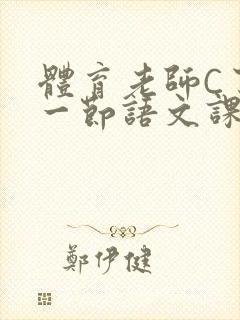 體育老師C
一節語文課
鄭伊健